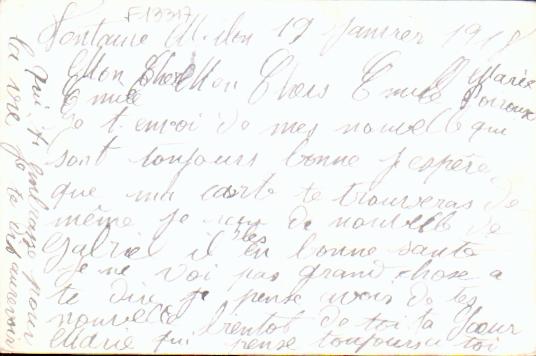 F13317
Fontaine Milon 19 janvier 1918
Mon Cher Mon Chers Emile Marie
Emile
Je t envoi de mes nouvelle qui
sont toujours bonne j espère
que ma carte te trouveras de
même je de nouvelle de
Gabriel il es en bonne santé
je ne voi pas grand chose a
te dire je pense avoir de tes
nouvelle bientot de toi ta Sœur
Marie qui pense toujours a toi
Qui t embrasse pour
la vie je te dis aurevoir